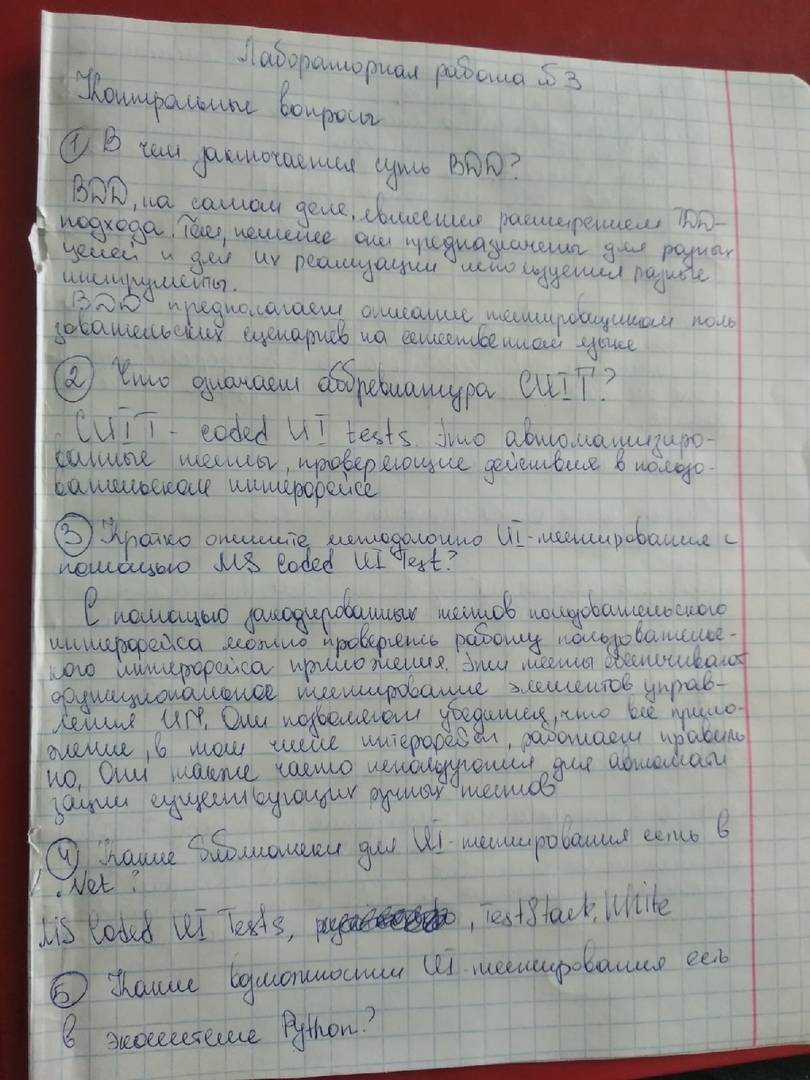 Лабораторная работа №3
Контрольные вопросы
① В чем заключается суть BDD?
BDD, на самом деле, является расширением TDD-
подхода. Тем, неменее они предназначены для разных
целей и для их реализации используются разные
инструменты.
BDD предполагает описание тестировщиком поль
зовательских сценариев на естественном языке
② Что означает аббревиатура CUIT?
CUIT - coded UI tests. Это автоматизиро-
ванные тесты, проверяющие действия в пользо-
вательском интерфейсе
③ Кратко опишите методологию UI-тестирования с
помощью MS Coded UI Test?
С помощью закодированных тестов пользовательского
интерфейса можно проверять работу пользовательс-
кого интерфейса приложения. Эти тесты обеспечивают
функциональное тестирование элементов управ-
ления ИП. Они позволяют убедиться, что все прило-
жение, в том числе интерфейсы, работает правиль
но. Они также часто используются для автомати
зации существующих ручных тестов
④ Какие библиотеки для UI-тестирования есть в
.Net?
MS Coded UI Tests, , TestStack.White
⑤ Какие возможности UI-тестирования есть
в экосистеме Python?